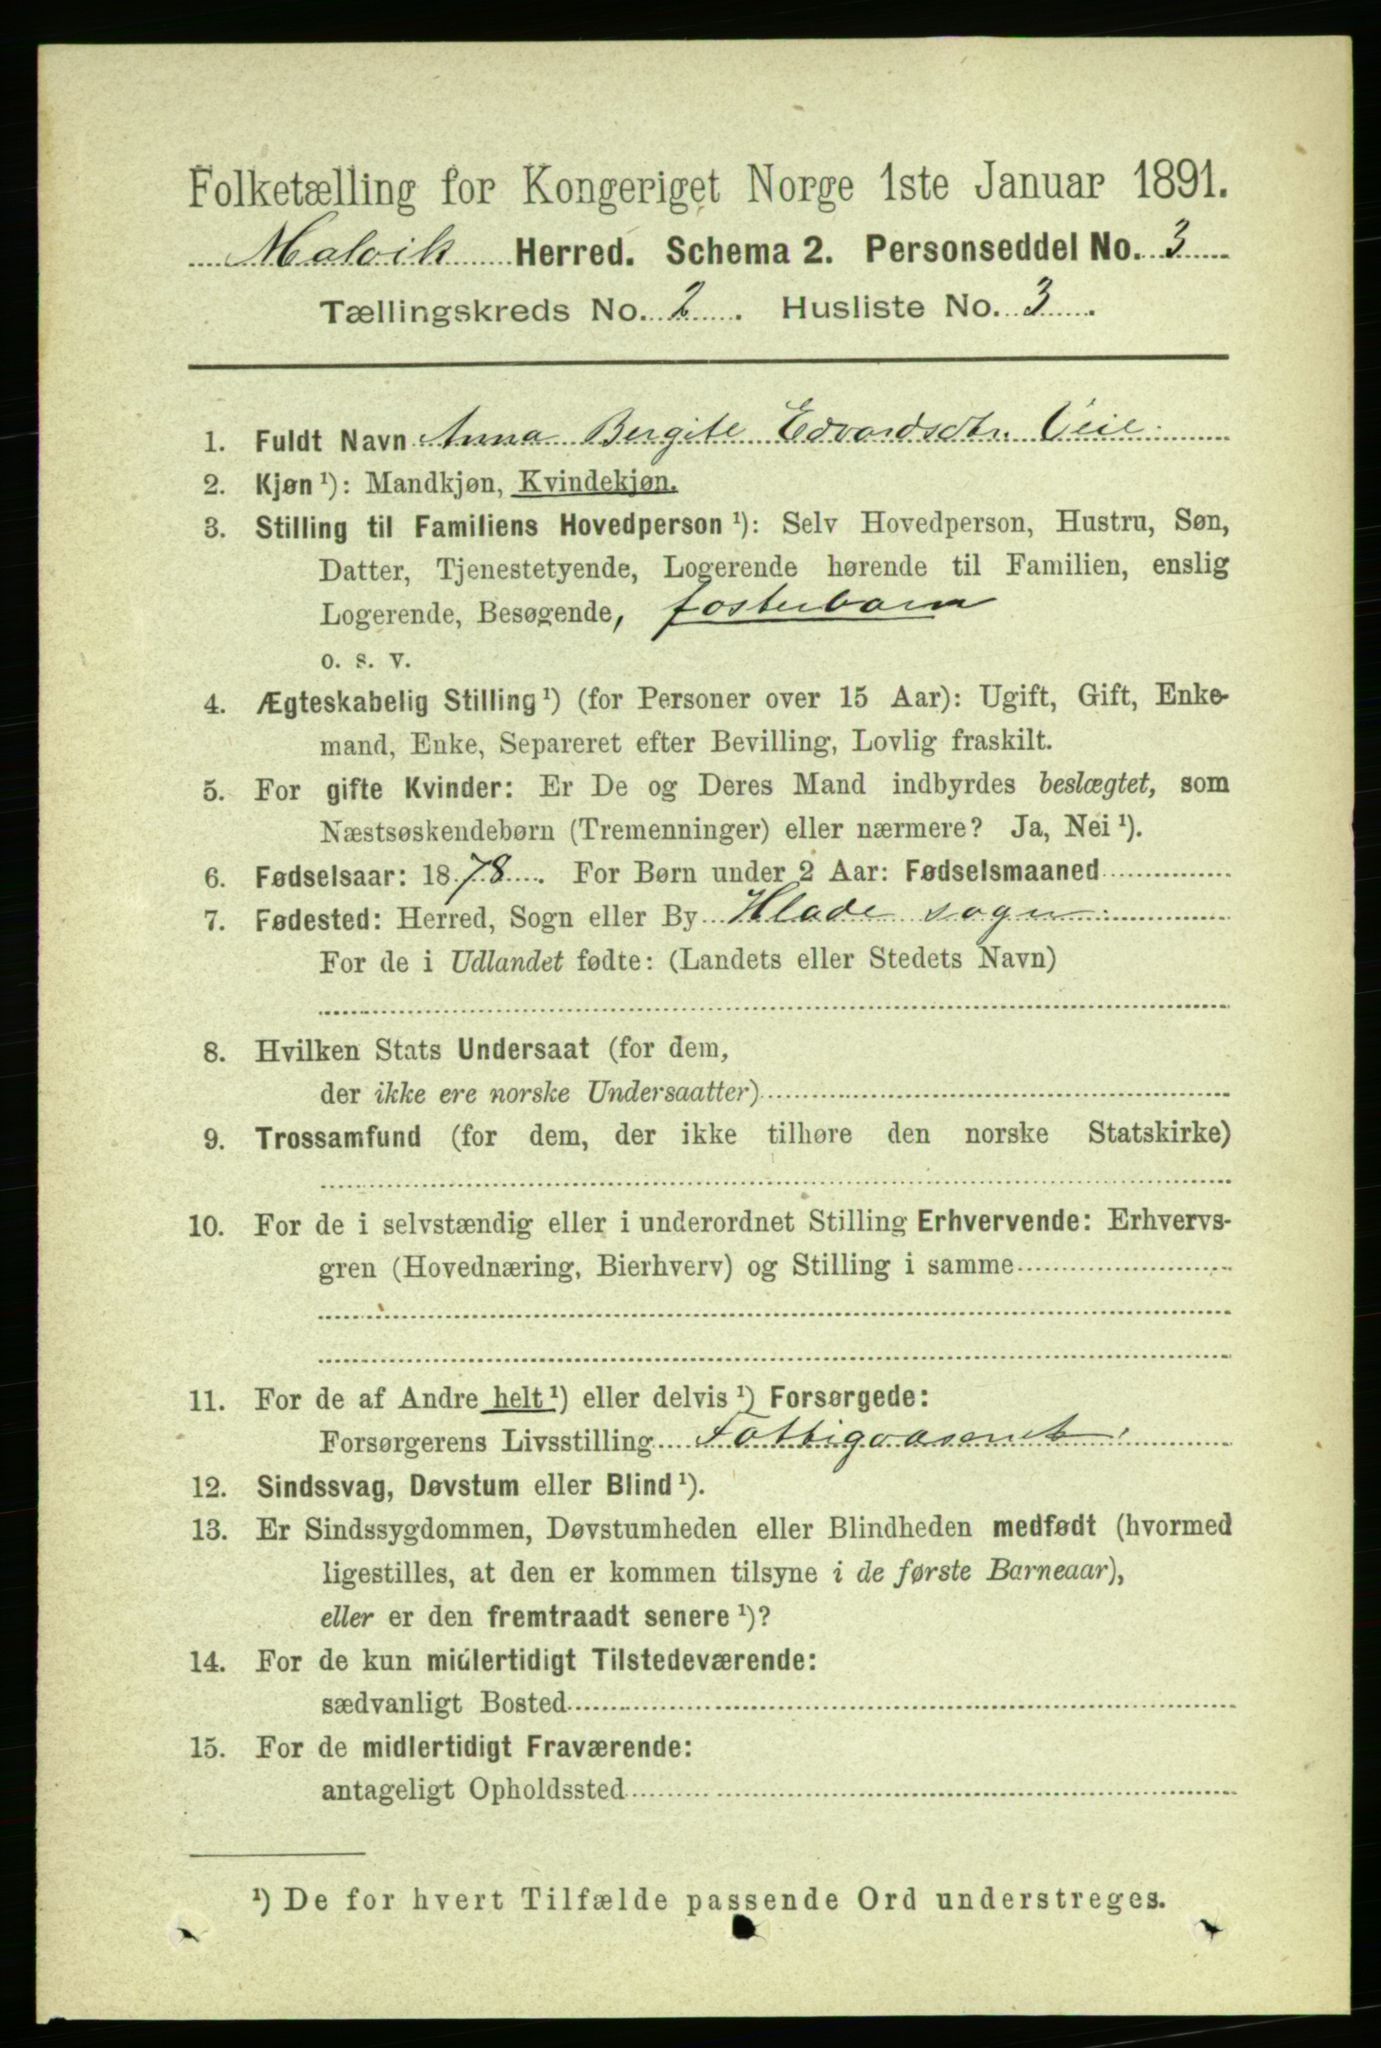 Folketælling for Kongeriget Norge 1ste Januar 1891.
Malvik Herred. Schema 2. Personseddel No. 3
Tællingskreds No. 2. Husliste No. 3.
1. Fuldt Navn Anna Bergite Edvardsdtr. Veie
2. Kjøn ¹): Mandkjøn, Kvindekjøn.
3. Stilling til Familiens Hovedperson ¹): Selv Hovedperson, Hustru, Søn,
Datter, Tjenestetyende, Logerende hørende til Familien, enslig
Logerende, Besøgende, fosterbarn
o. s. v.
4. Ægteskabelig Stilling ¹) (for Personer over 15 Aar): Ugift, Gift, Enke-
mand, Enke, Separeret efter Bevilling, Lovlig fraskilt.
5. For gifte Kvinder: Er De og Deres Mand indbyrdes beslægtet, som
Næstsøskendebørn (Tremenninger) eller nærmere? Ja, Nei ¹).
6. Fødselsaar: 1878. For Børn under 2 Aar: Fødselsmaaned
7. Fødested: Herred, Sogn eller By Hlade sogn
For de i Udlandet fødte: (Landets eller Stedets Navn)
8. Hvilken Stats Undersaat (for dem,
der ikke ere norske Undersaatter)
9. Trossamfund (for dem, der ikke tilhøre den norske Statskirke)
10. For de i selvstændig eller i underordnet Stilling Erhvervende: Erhvervs-
gren (Hovednæring, Bierhverv) og Stilling i samme
11. For de af Andre helt ¹) eller delvis ¹) Forsørgede:
Forsørgerens Livsstilling Fattigvæsenet
12. Sindssvag, Døvstum eller Blind ¹).
13. Er Sindssygdommen, Døvstumheden eller Blindheden medfødt (hvormed
ligestilles, at den er kommen tilsyne i de første Barneaar),
eller er den fremtraadt senere ¹)?
14. For de kun midlertidigt Tilstedeværende:
sædvanligt Bosted
15. For de midlertidigt Fraværende:
antageligt Opholdssted
¹) De for hvert Tilfælde passende Ord understreges.